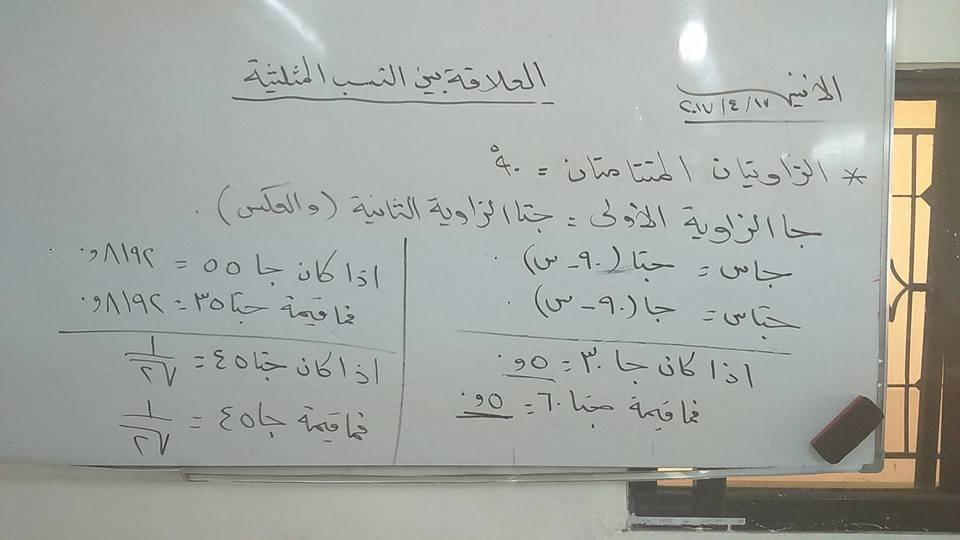 الاثنين
٢٠١٧/٤/١٧
العلاقة بين النسب المثلثية
* الزاويتان المتتامتان = ٩٠°
جا الزاوية الأولى = جتا الزاوية الثانية (والعكس).
جاس = جتا (٩٠ - س)
جتاس = جا (٩٠ - س)
اذا كان جا ٣٠ = ٥و٠
فما قيمة جتا ٦٠ = ٥و٠
اذا كان جا ٥٥ = ٨١٩٢و٠
فما قيمة جتا ٣٥ = ٨١٩٢و٠
اذا كان جتا ٤٥ = ١/√٢
فما قيمة جا ٤٥ = ١/√٢